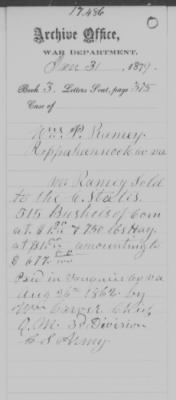 17,486
Archive Office,
WAR DEPARTMENT,
Jan 31, 1879.
Book 3. Letters Sent, page 375
Case of
Wm P. Ramey
Rappahannock co va
Wm Ramey sold
to the C. States.
515 Bushels of Corn
at $1 & 750 lbs Hay
at amounting to
$ 677
Paid in Fauquier co va
Aug 26th 1862 by
Wm
Q.M. 3d Division
C S Army